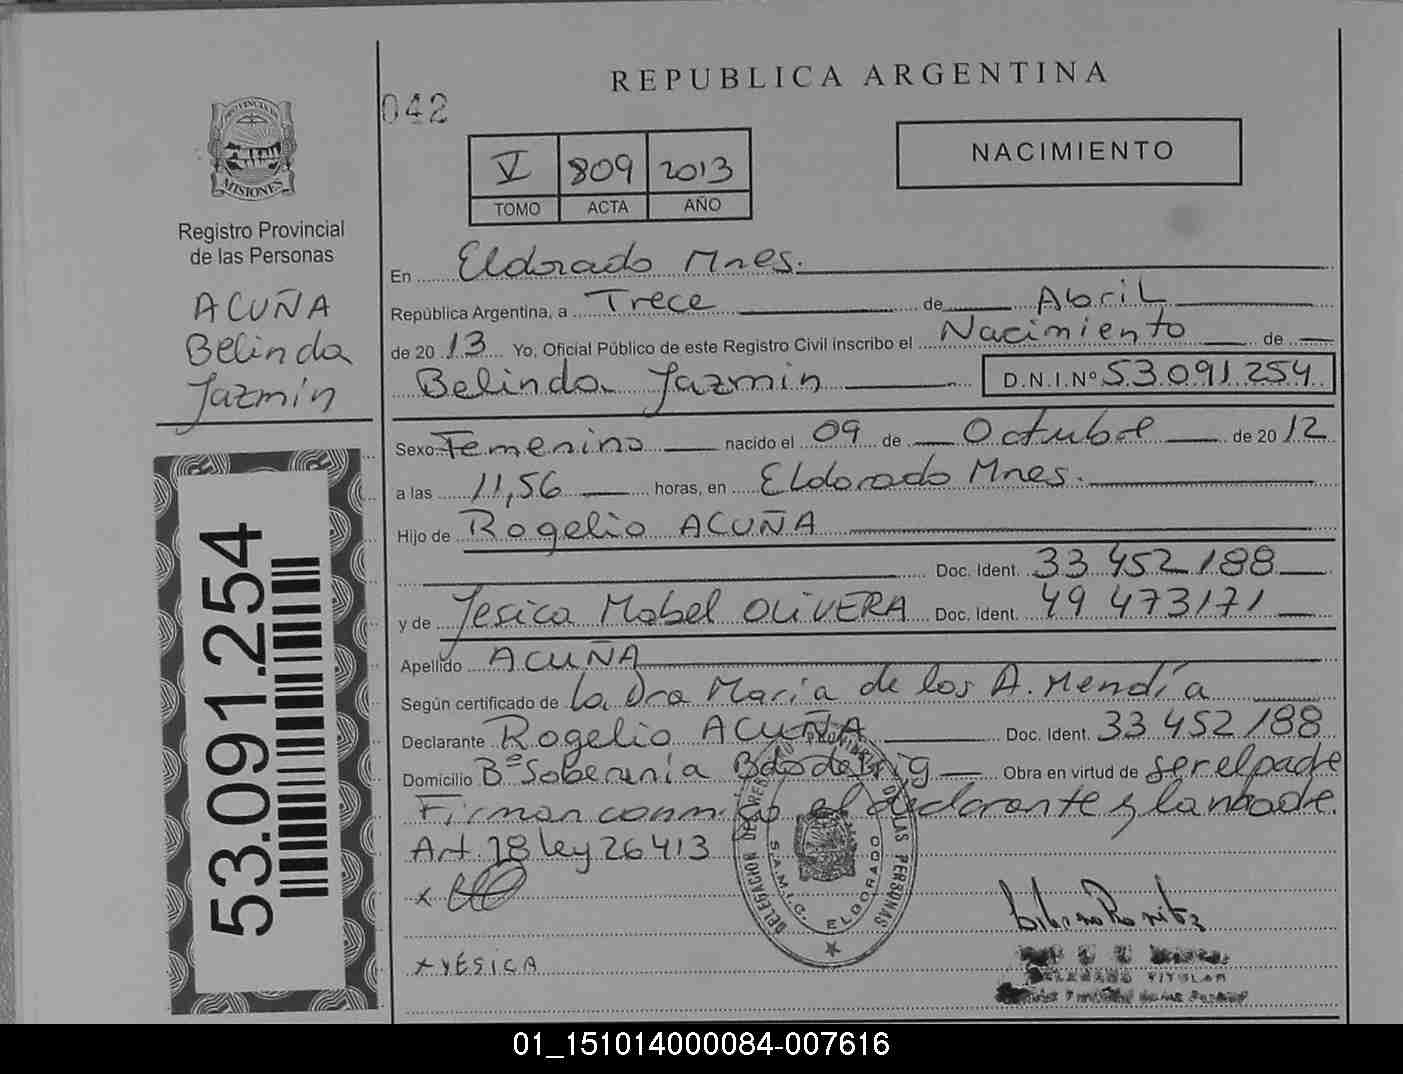 REPUBLICA ARGENTINA
042
PROVINCIA DE
MISIONES
Registro Provincial
de las Personas
ACUÑA
Belinda
Jazmín
53.091.254
V 809 2013
TOMO ACTA AÑO
NACIMIENTO
En Eldorado Mnes.
República Argentina, a Trece de Abril
de 2013 Yo, Oficial Público de este Registro Civil inscribo el Nacimiento de
Belinda Jazmín D.N.I.Nº 53.091.254
Sexo Femenino nacido el 09 de Octubre de 2012
a las 11,56 horas, en Eldorado Mnes.
Hijo de Rogelio ACUÑA
Doc. Ident. 33 452 188
y de Jesica Mabel OLIVERA Doc. Ident. 49 473171
Apellido ACUÑA
Según certificado de la Dra Maria de los A. Mendía
Declarante Rogelio ACUÑA Doc. Ident. 33 452 188
Domicilio Bº Obra en virtud de ser el padre
Firman el declarante y la madre.
Art. 28 ley 26413
DELEGACION DE LAS PERSONAS
S.A.M.I.C. ELDORADO
x YESICA
01_151014000084-007616